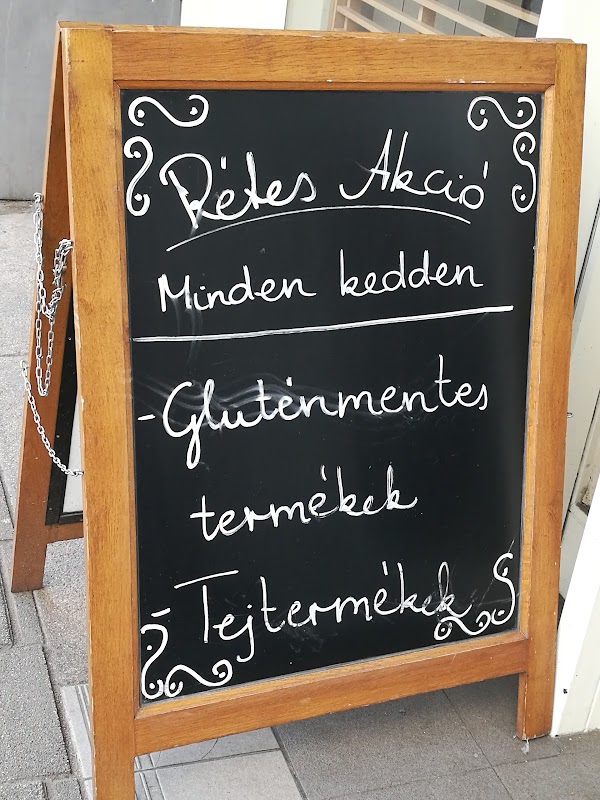 Rétes Akció
Minden kedden
- Gluténmentes
termékek
- Tejtermékek